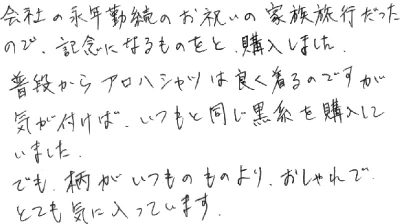 会社の永年勤続のお祝いの家族旅行だった
ので、記念になるものをと、購入しました.
普段からアロハシャツは良く着るのですが
気が付けば、いつもと同じ黒系を購入して
いました.
でも、柄がいつものものより、おしゃれで、
とても気に入っています.